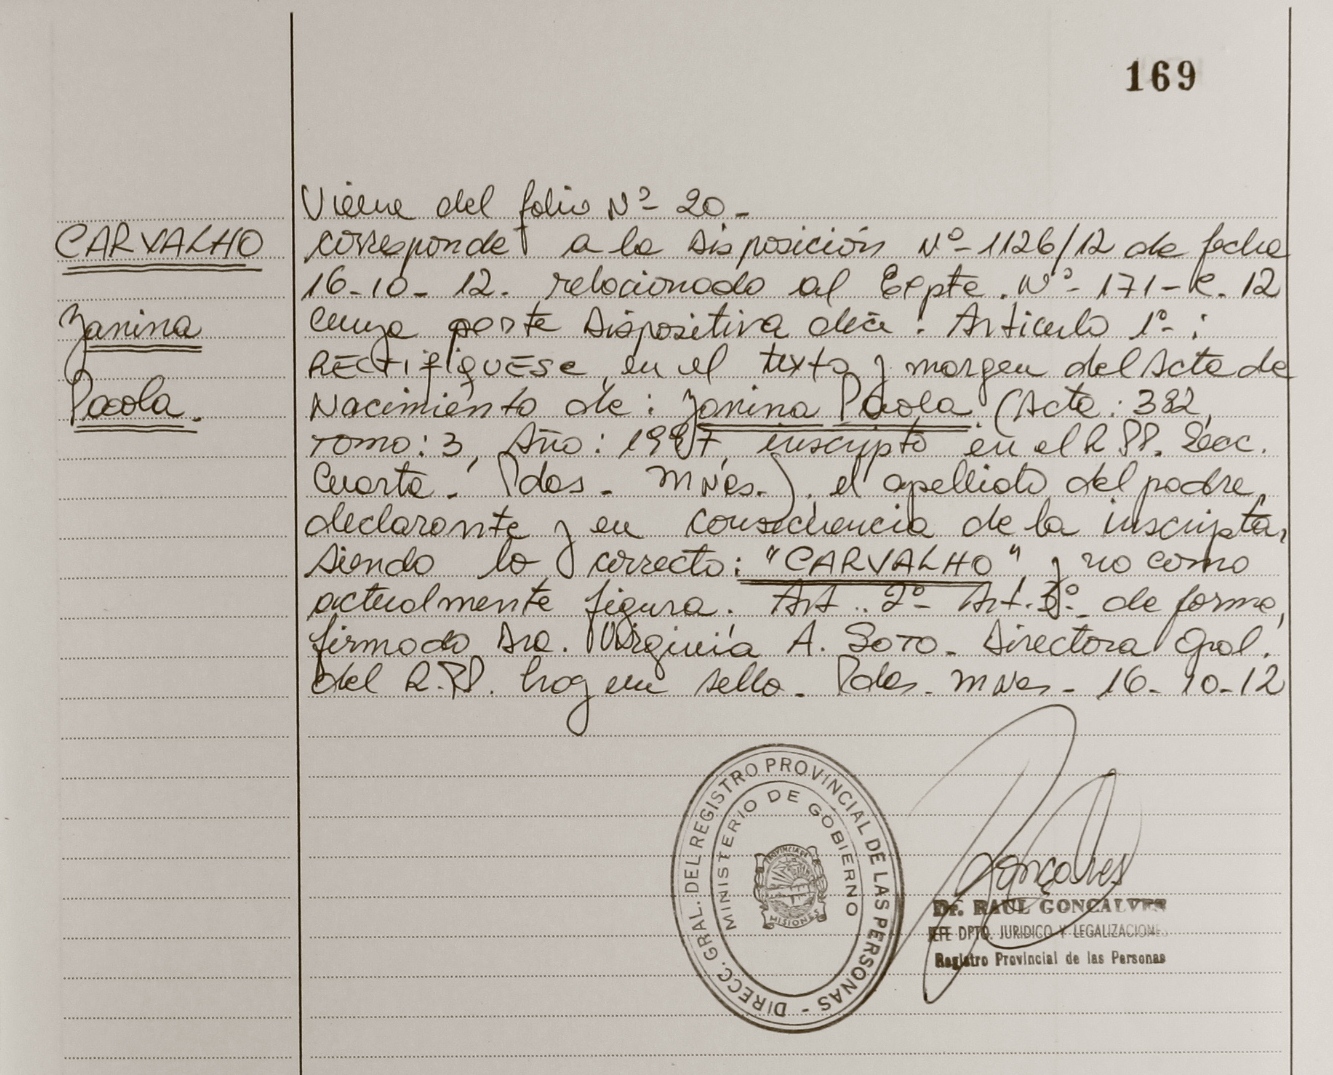 169
Viene del folio Nº 20 -
CARVALHO
Zanina
Paola.
corresponde a la Disposición Nº 1126/12 de fecha
16-10-12. relacionado al Expte. Nº 171-R-12
cuya parte Dispositiva dice: Articulo 1º:
RECTIFIQUESE en el texto y margen del Acta de
Nacimiento de: Zanina Paola (Acta: 382,
Tomo: 3, Año: 1987, inscripto en el R.P.P. Secc.
Cuarta. Pdas. Mnes.) el apellido del padre
declarante y en consecuencia de la inscripta,
siendo lo correcto: "CARVALHO" y no como
actualmente figura. Art. 2º Art. 3º de forma,
firmado Dra. Virginia A. Soto. Directora Gral.
del R.P.P. hay un sello. Pdas. Mnes - 16-10-12
DIRECC. GRAL. DEL REGISTRO PROVINCIAL DE LAS PERSONAS -
MINISTERIO DE GOBIERNO
PROVINCIA DE
MISIONES
Gonçalves
Dr. RAUL GONCALVES
JEFE DPTO. JURIDICO Y LEGALIZACIONES
Registro Provincial de las Personas